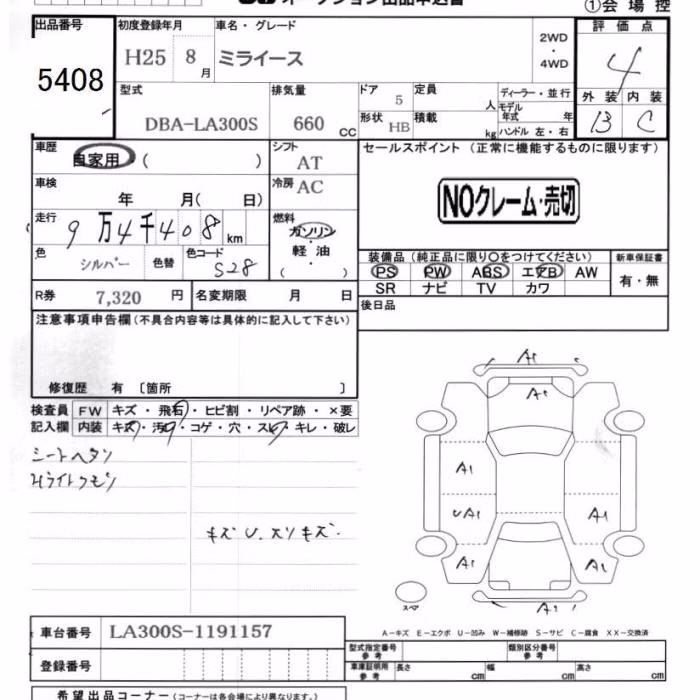 オークション出品申込書
①会場控
出品番号 初度登録年月 車名・グレード 2WD・4WD 評価点
5408 H25 8月 ミライース 4
型式 排気量 ドア 定員 ディーラー・並行 外装 内装
DBA-LA300S 660cc 5 人 モデル年式 年 B C
形状 積載
HB kg ハンドル 左・右
車歴 シフト セールスポイント (正常に機能するものに限ります)
自家用 ( ) AT
車検 冷房 AC NOクレーム・売切
年 月( 日)
走行 燃料
9万4千408km ガソリン・軽油
( )
装備品 (純正品に限り○をつけてください) 新車保証書
色 色替 色コード PS PW ABS エアB AW 有・無
シルバー S28 SR ナビ TV カワ
R券 7,320円 名変期限 月 日 後日品
注意事項申告欄 (不具合内容等は具体的に記入して下さい)
修復歴 有 〔箇所 〕
検査員記入欄 FW キズ・飛石・ヒビ割・リペア跡・×要
内装 キズ・汚れ・コゲ・穴・スレ・キレ・破レ
シートヘタリ
Hライトクモリ
キズ U.スリキズ.
A1
A1
A1
UA1 A1
A1 A1
A1
スペア
A−キズ E−エクボ U−凹み W−補修跡 S−サビ C−腐食 XX−交換済
車台番号 LA300S-1191157
登録番号
型式指定番号 参考 類別区分番号 参考
車庫証明用 参考 長さ cm 幅 cm 高さ cm
希望出品コーナー (コーナーは各会場により異なります。)